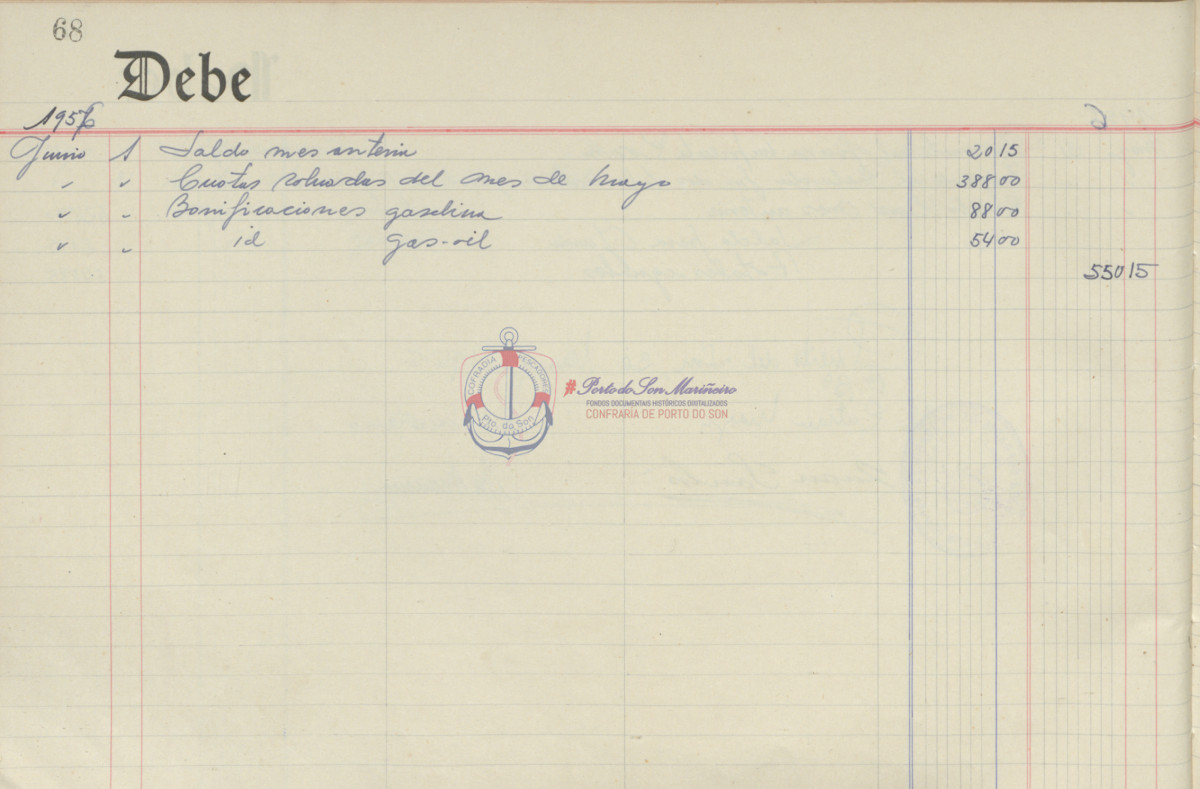 68
Debe
1956
Junio 1 Saldo mes anterior 20 15
" " Cuotas cobradas del mes de Mayo 388 00
" " Bonificaciones gasolina 88 00
" " id gas-oil 54 00
550 15
COFRADIA PESCADORES
Pto. do Son
#Porto do Son Mariñeiro
FONDOS DOCUMENTAIS HISTÓRICOS DIXITALIZADOS
CONFRARÍA DE PORTO DO SON